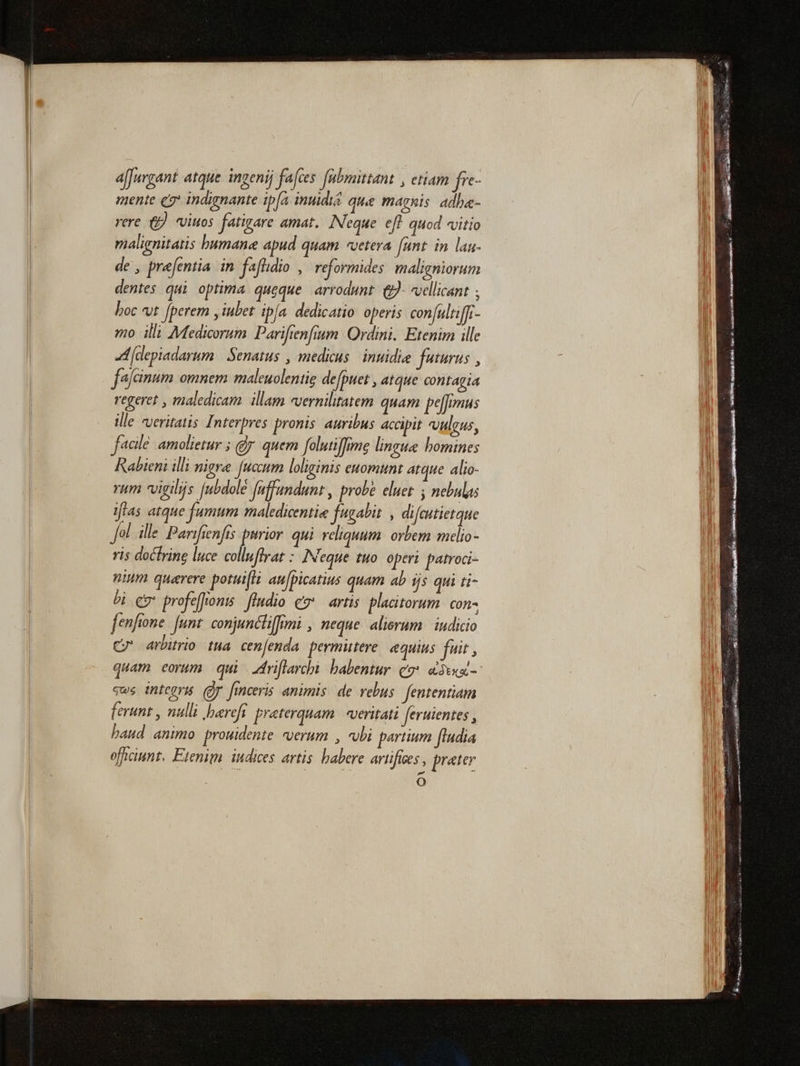 aſſurgant atque ingenij faſces ſubmittant , etiam fre-
mente & indignante ipſa inuidiâ quæ magnis adhæ-
rere & viuos fatigare amat. Neque eſt quod vitio
malignitatis humanæ apud quam vetera ſunt in lau-
de , præſentia in faſtidio , reformides maligniorum
dentes qui optima quæque arrodunt & vellicant ;
hoc vt ſperem ,iubet ipſa dedicatio operis conſultiſſi-
mo illi Medicorum Pariſienſium Ordini. Etenim ille
Aſclepiadarum Senatus , medicus inuidiæ futurus ,
faſcinum omnem maleuolentię deſpuet , atque contagia
regeret , maledicam illam vernilitatem quam peſſimus
ille veritatis Interpres pronis auribus accipit vulgus,
facilè amolietur ; & quem ſolutiſſimę linguæ homines
Rabieni illi nigræ ſuccum loliginis euomunt atque alio-
rum vigilijs ſubdolè ſuffundunt , probè eluet ; nebulas
iſtas atque fumum maledicentiæ fugabit , diſcutietque
ſol ille Pariſienſis purior qui reliquum orbem melio-
ris doctrinę luce colluſtrat : Neque tuo operi patroci-
nium quærere potuiſti auſpicatius quam ab ijs qui ti-
bi & profeſſionis ſtudio & artis placitorum con-
ſenſione ſunt conjunctiſſimi , neque aliorum iudicio
& arbitrio tua cenſenda permittere æquius fuit ,
quam eorum qui Ariſtarchi habentur & ἀδεκα-
ςως integris & ſinceris animis de rebus ſententiam
ferunt , nulli hæreſi præterquam veritati ſeruientes ,
haud animo prouidente verum , vbi partium ſtudia
officiunt. Etenim iudices artis habere artifices , præter
õ